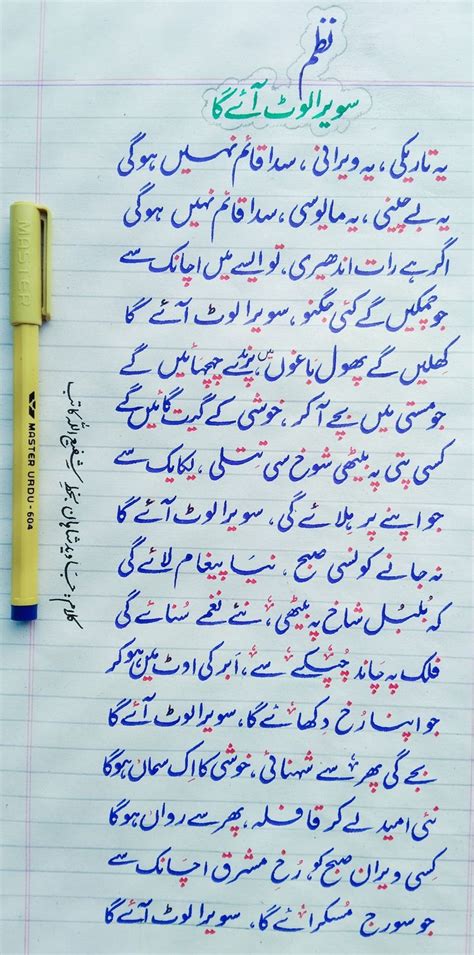 نظم
سویرا لوٹ آئے گا
یہ تاریکی، یہ ویرانی، سدا قائم نہیں ہوگی
یہ بے چینی، یہ مایوسی، سدا قائم نہیں ہوگی
اگر ہے رات اندھیری، تو ایسے میں اچانک سے
جو چمکیں گے کئی جگنو، سویرا لوٹ آئے گا
کھلیں گے پھول باغوں میں، پرندے چہچہائیں گے
جو مستی میں بچے آکر، خوشی کے گیت گائیں گے
کسی پتی پہ بیٹھی شوخ سی تتلی، یکایک سے
جو اپنے پر ہلائے گی، سویرا لوٹ آئے گا
نہ جانے کونسی صبح، نیا پیغام لائے گی
کہ بُلبُل شاخ پہ بیٹھی، نئے نغمے سُنائے گی
فلک پہ چاند چُپکے سے، اَبر کی اوٹ میں ہوکر
جو اپنا رُخ دکھائے گا، سویرا لوٹ آئے گا
بجے گی پھر سے شہنائی، خوشی کا اِک سماں ہوگا
نئی امید لے کر قافلہ، پھر سے رواں ہوگا
کِسی ویران صبح کو، رُخِ مشرق اچانک سے
جو سورج مُسکرائے گا، سویرا لوٹ آئے گا
کلام: جاوید شاہان، بخط شفیع اللہ کاتب
MASTER
MASTER URDU - 604